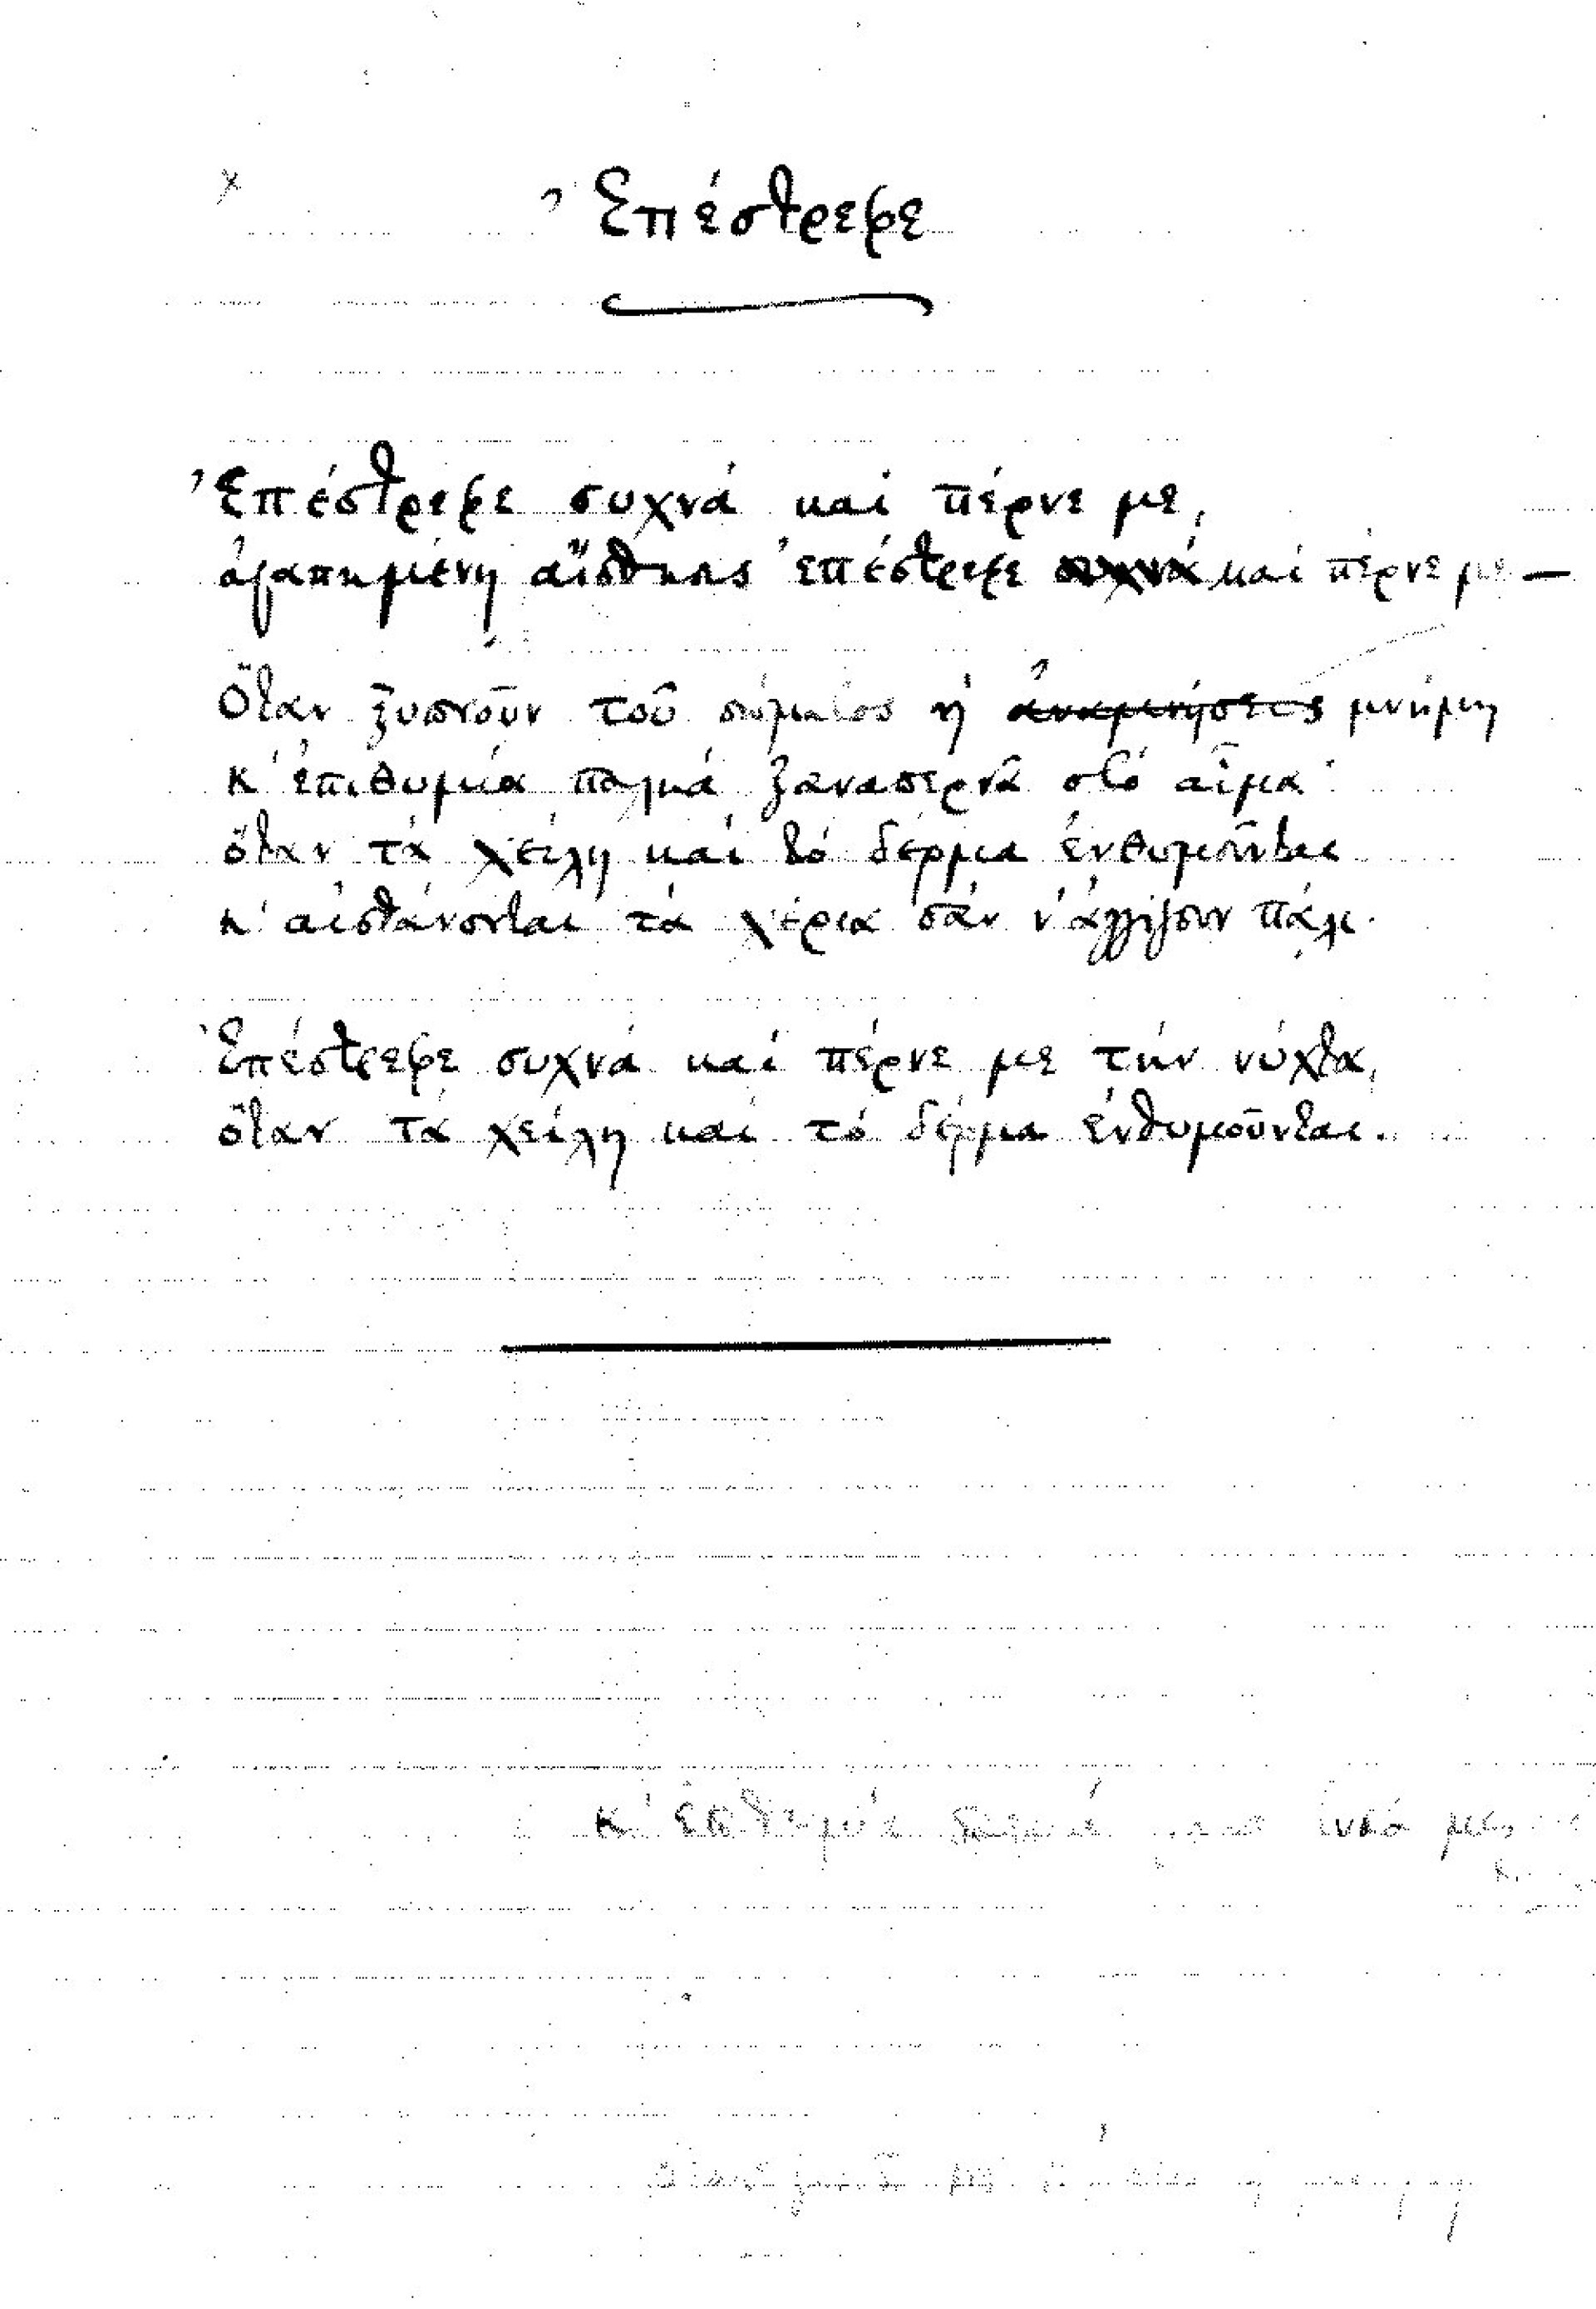 Ἐπέστρεφε
Ἐπέστρεφε συχνά καί πέρνε με,
ἀγαπημένη αἴσθησις ἐπέστρεφε συχνά καί πέρνε με —
Ὅταν ξυπνοῦν τοῦ σώματος ἡ ἀναμνήσεις μνήμη
κ' ἐπιθυμία παληά ξαναπερνᾶ στό αἷμα·
ὅταν τά χείλη καί τό δέρμα ἐνθυμοῦνται
κ' αἰσθάνονται τά χέρια σάν ν' ἀγγίζουν πάλι.
Ἐπέστρεφε συχνά καί πέρνε με τήν νύχτα,
ὅταν τά χείλη καί τό δέρμα ἐνθυμοῦνται.
κ' ἐπιθυμία